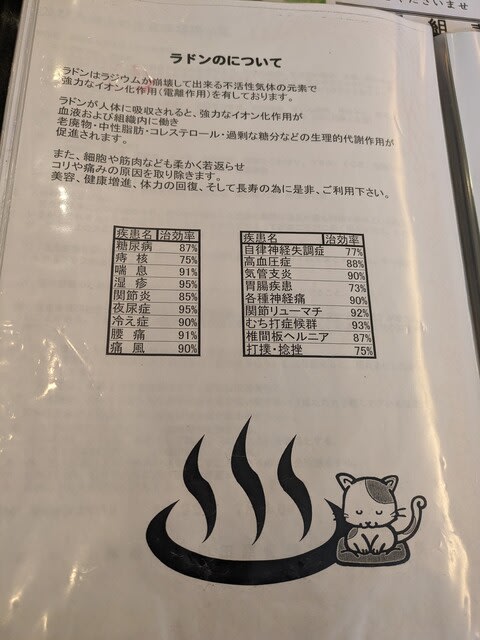 くださいませ
組
ラドンのについて
ラドンはラジウムが崩壊して出来る不活性気体の元素で
強力なイオン化作用(電離作用)を有しております。
ラドンが人体に吸収されると、強力なイオン化作用が
血液および組織内に働き
老廃物・中性脂肪・コレステロール・過剰な糖分などの生理的代謝作用が
促進されます。
また、細胞や筋肉なども柔かく若返らせ
コリや痛みの原因を取り除きます。
美容、健康増進、体力の回復、そして長寿の為に是非、ご利用下さい。
疾患名 治効率
糖尿病 87%
痔核 75%
喘息 91%
湿疹 95%
関節炎 85%
夜尿症 95%
冷え症 90%
腰痛 91%
痛風 90%
疾患名 治効率
自律神経失調症 77%
高血圧症 88%
気管支炎 90%
胃腸疾患 73%
各種神経痛 90%
関節リューマチ 92%
むち打症候群 93%
椎間板ヘルニア 87%
打撲・捻挫 75%